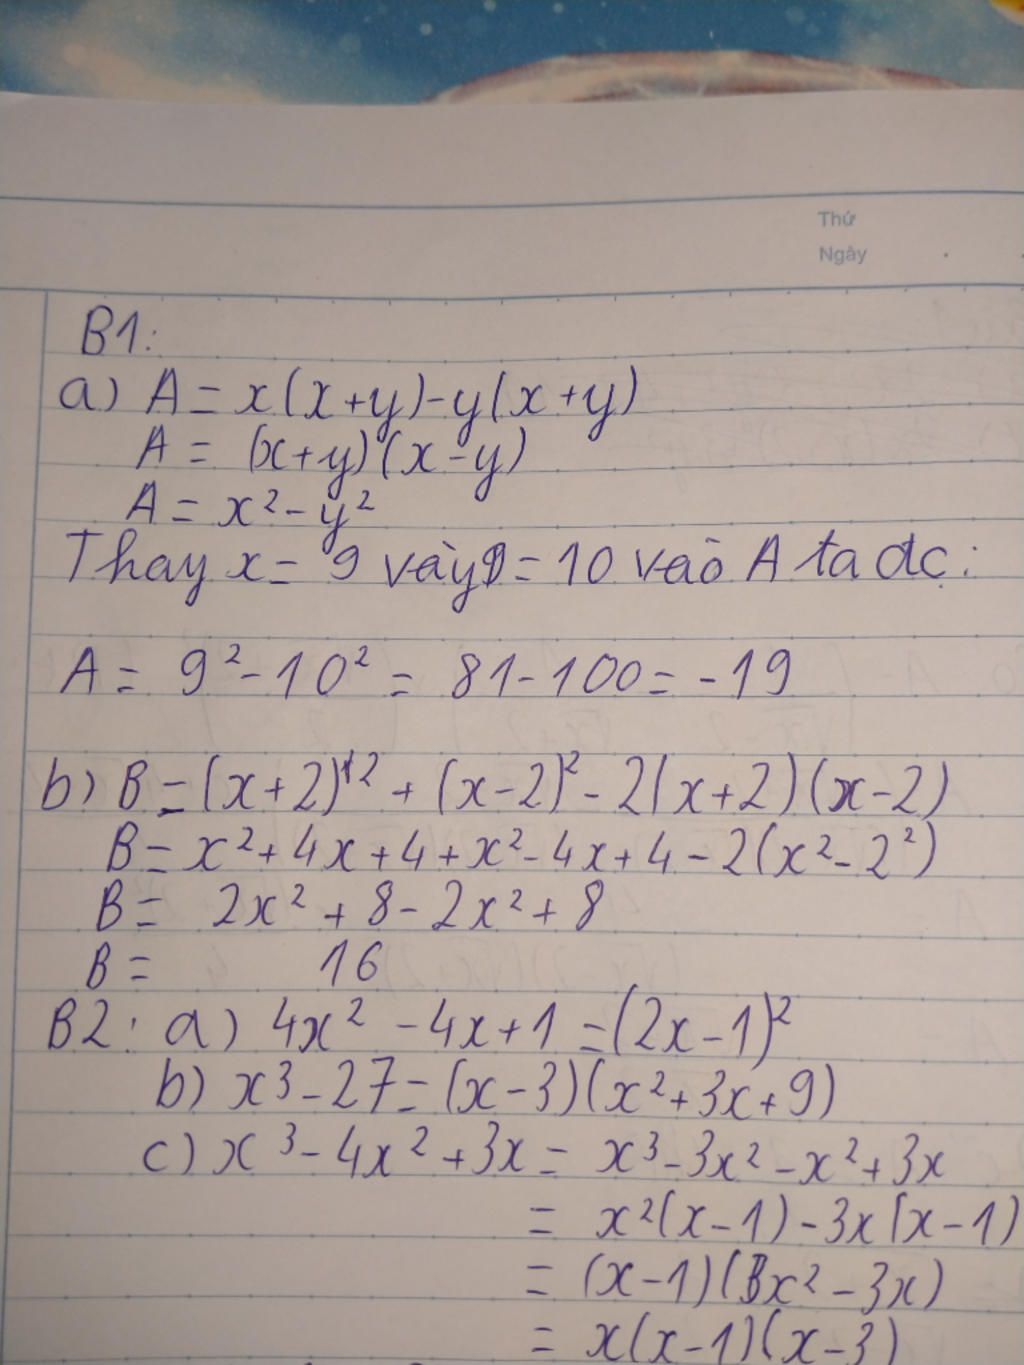 Thứ
Ngày
B1:
a) A = x(x+y)-y(x+y)
A = (x+y)(x-y)
A = x² - y²
Thay x = 9 và y = 10 vào A ta đc:
A = 9² - 10² = 81 - 100 = -19
b) B = (x+2)² + (x-2)² - 2(x+2)(x-2)
B = x² + 4x + 4 + x² - 4x + 4 - 2(x² - 2²)
B = 2x² + 8 - 2x² + 8
B = 16
B2: a) 4x² - 4x + 1 = (2x - 1)²
b) x³ - 27 = (x - 3)(x² + 3x + 9)
c) x³ - 4x² + 3x = x³ - 3x² - x² + 3x
= x²(x - 1) - 3x(x - 1)
= (x - 1)(x² - 3x)
= x(x - 1)(x - 3)